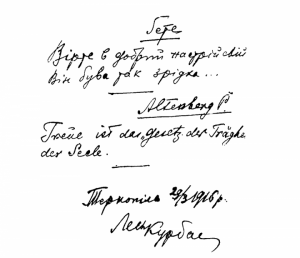 Гете
Вірте в добрий настрій свій
Він бува так зрідка...
Altenberg P.
Treue ist das Gesetz der Trägh.
der Seele.
Тернопіль 29/3 1916 р.
Лесь Курбас